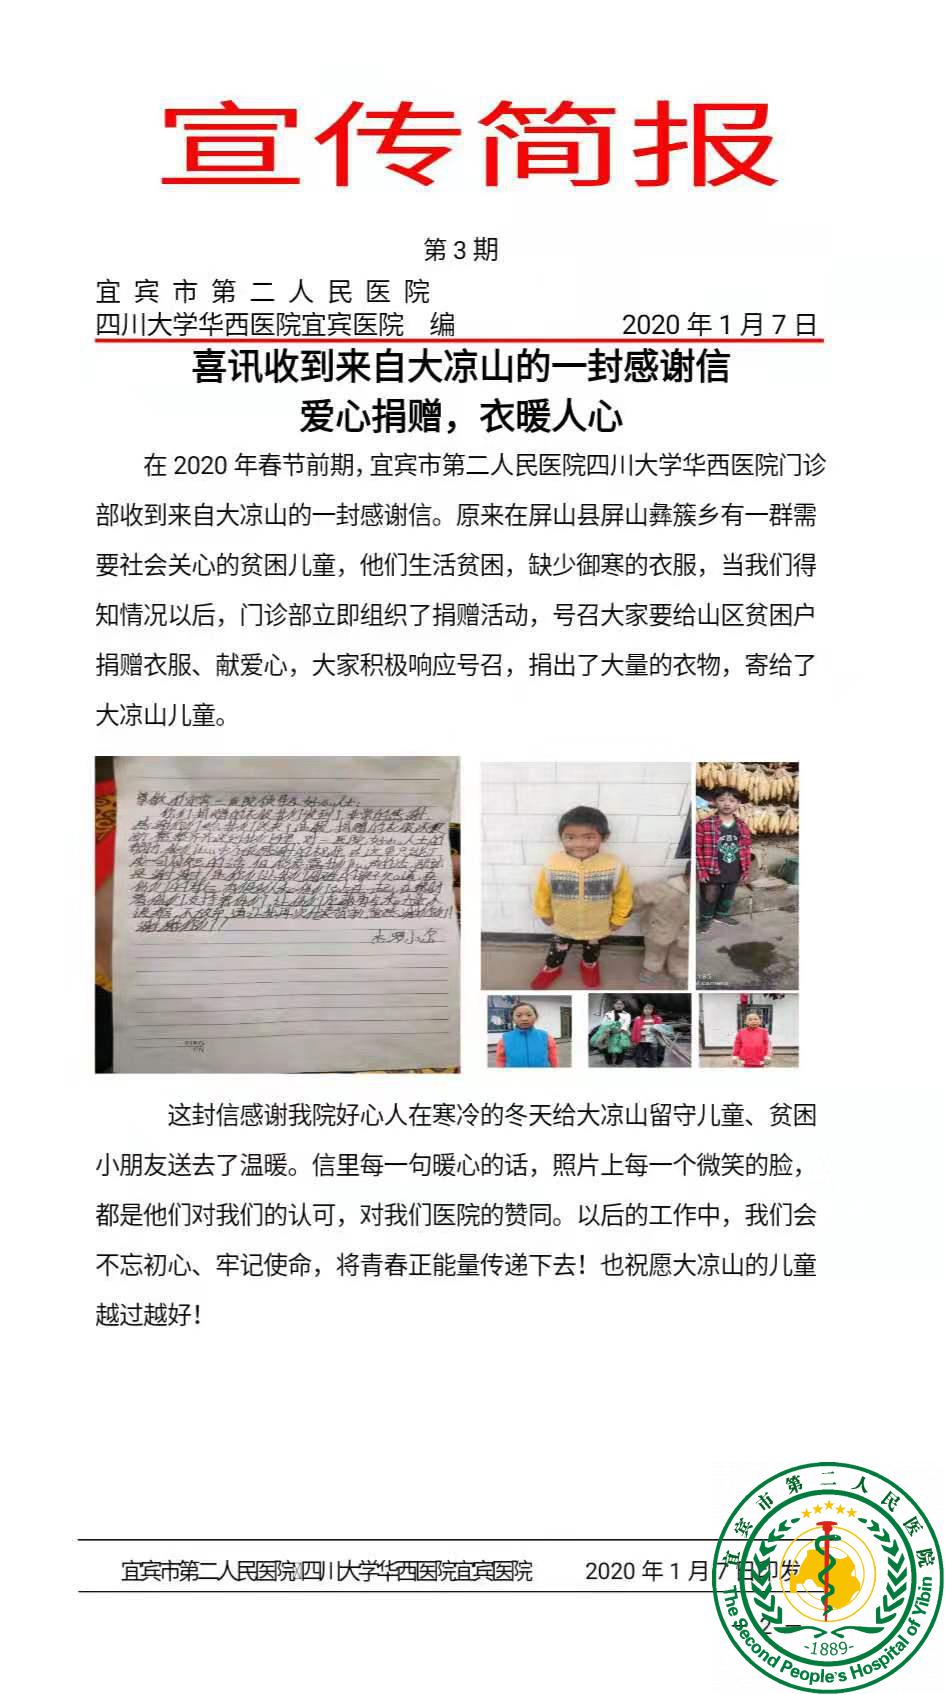 宣传简报
第 3 期
宜宾市第二人民医院
四川大学华西医院宜宾医院 编 2020 年 1 月 7 日
喜讯收到来自大凉山的一封感谢信
爱心捐赠，衣暖人心
在 2020 年春节前期，宜宾市第二人民医院四川大学华西医院门诊
部收到来自大凉山的一封感谢信。原来在屏山县屏山彝簇乡有一群需
要社会关心的贫困儿童，他们生活贫困，缺少御寒的衣服，当我们得
知情况以后，门诊部立即组织了捐赠活动，号召大家要给山区贫困户
捐赠衣服、献爱心，大家积极响应号召，捐出了大量的衣物，寄给了
大凉山儿童。
这封信感谢我院好心人在寒冷的冬天给大凉山留守儿童、贫困
小朋友送去了温暖。信里每一句暖心的话，照片上每一个微笑的脸，
都是他们对我们的认可，对我们医院的赞同。以后的工作中，我们会
不忘初心、牢记使命，将青春正能量传递下去！也祝愿大凉山的儿童
越过越好！
宜宾市第二人民医院 四川大学华西医院宜宾医院 2020 年 1 月 7 日印发
2
宜宾市第二人民医院
-1889-
The Second People's Hospital of Yibin